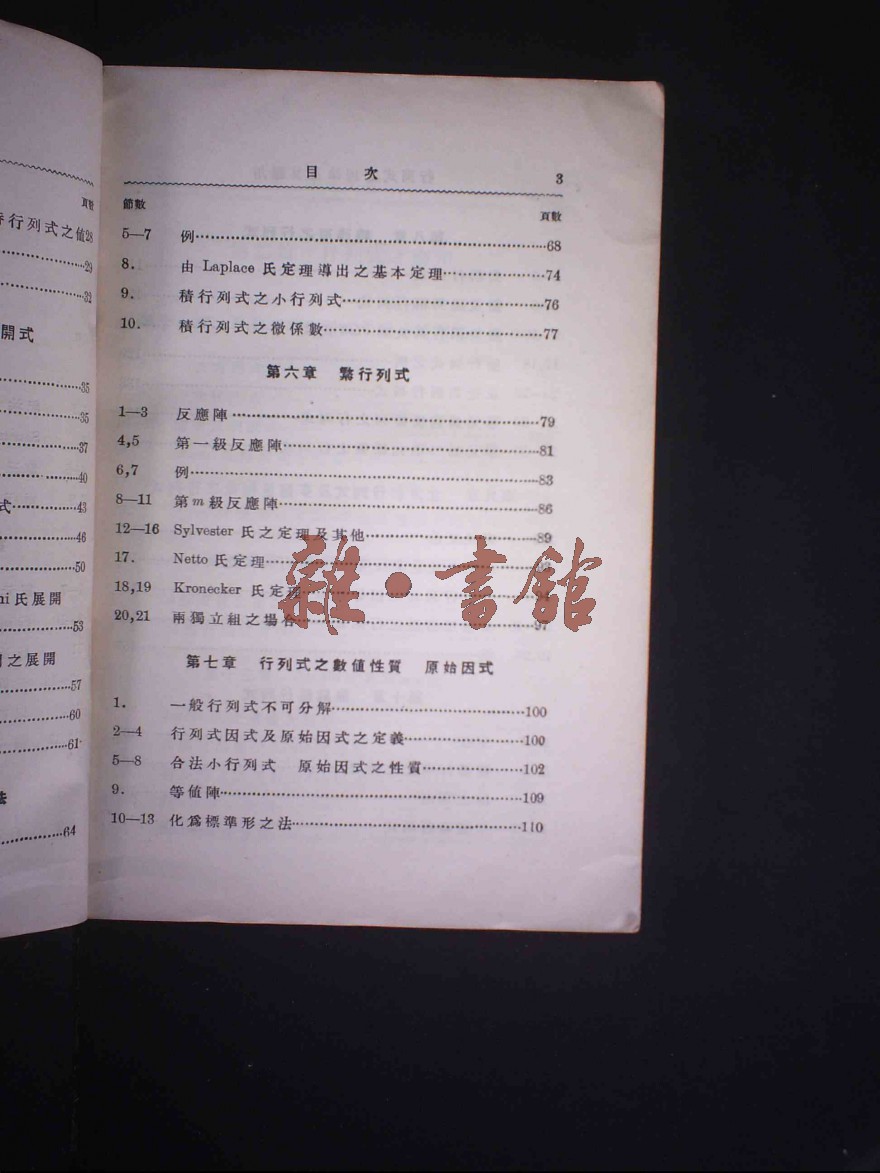 頁數
行列式之値28
29
32
開式
35
35
37
40
式 43
46
50
ni氏展開
53
之展開
57
60
61
法
64
目 次 3
節數 頁數
5—7 例 68
8. 由 Laplace 氏定理導出之基本定理 74
9. 積行列式之小行列式 76
10. 積行列式之微係數 77
第六章 繁行列式
1—3 反應陣 79
4,5 第一級反應陣 81
6,7 例 83
8—11 第m級反應陣 86
12—16 Sylvester 氏之定理及其他 89
17. Netto 氏定理
18,19 Kronecker 氏定理
20,21 兩獨立組之場合 97
雜·書館
第七章 行列式之數值性質 原始因式
1. 一般行列式不可分解 100
2—4 行列式因式及原始因式之定義 100
5—8 合法小行列式 原始因式之性質 102
9. 等值陣 109
10—13 化爲標準形之法 110